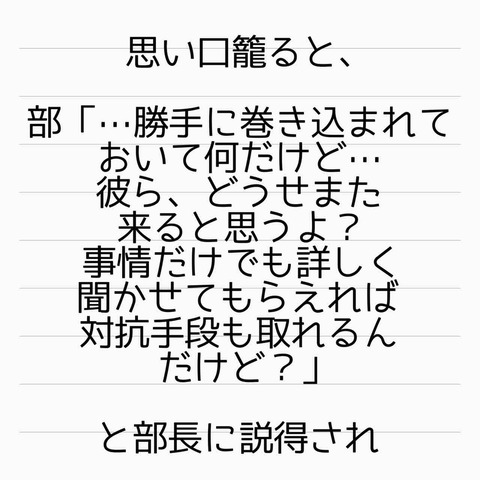 思い口籠ると、
部「…勝手に巻き込まれて
おいて何だけど…
彼ら、どうせまた
来ると思うよ？
事情だけでも詳しく
聞かせてもらえれば
対抗手段も取れるん
だけど？」
と部長に説得され